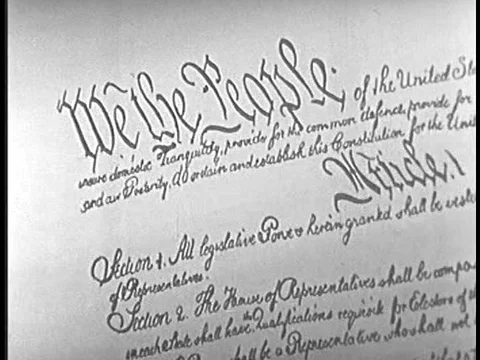 We the People of the United Sta
insure domestic Tranquility, provide for the common defence, provide for
and our Posterity, do ordain and establish this Constitution for the Unit
Article. I
Section 1. All legislative Powers herein granted shall be veste
of Representatives.
Section 2. The House of Representatives shall be compo
in each State shall have the Qualifications requisite for Electors of the
shall be a Representative who shall not